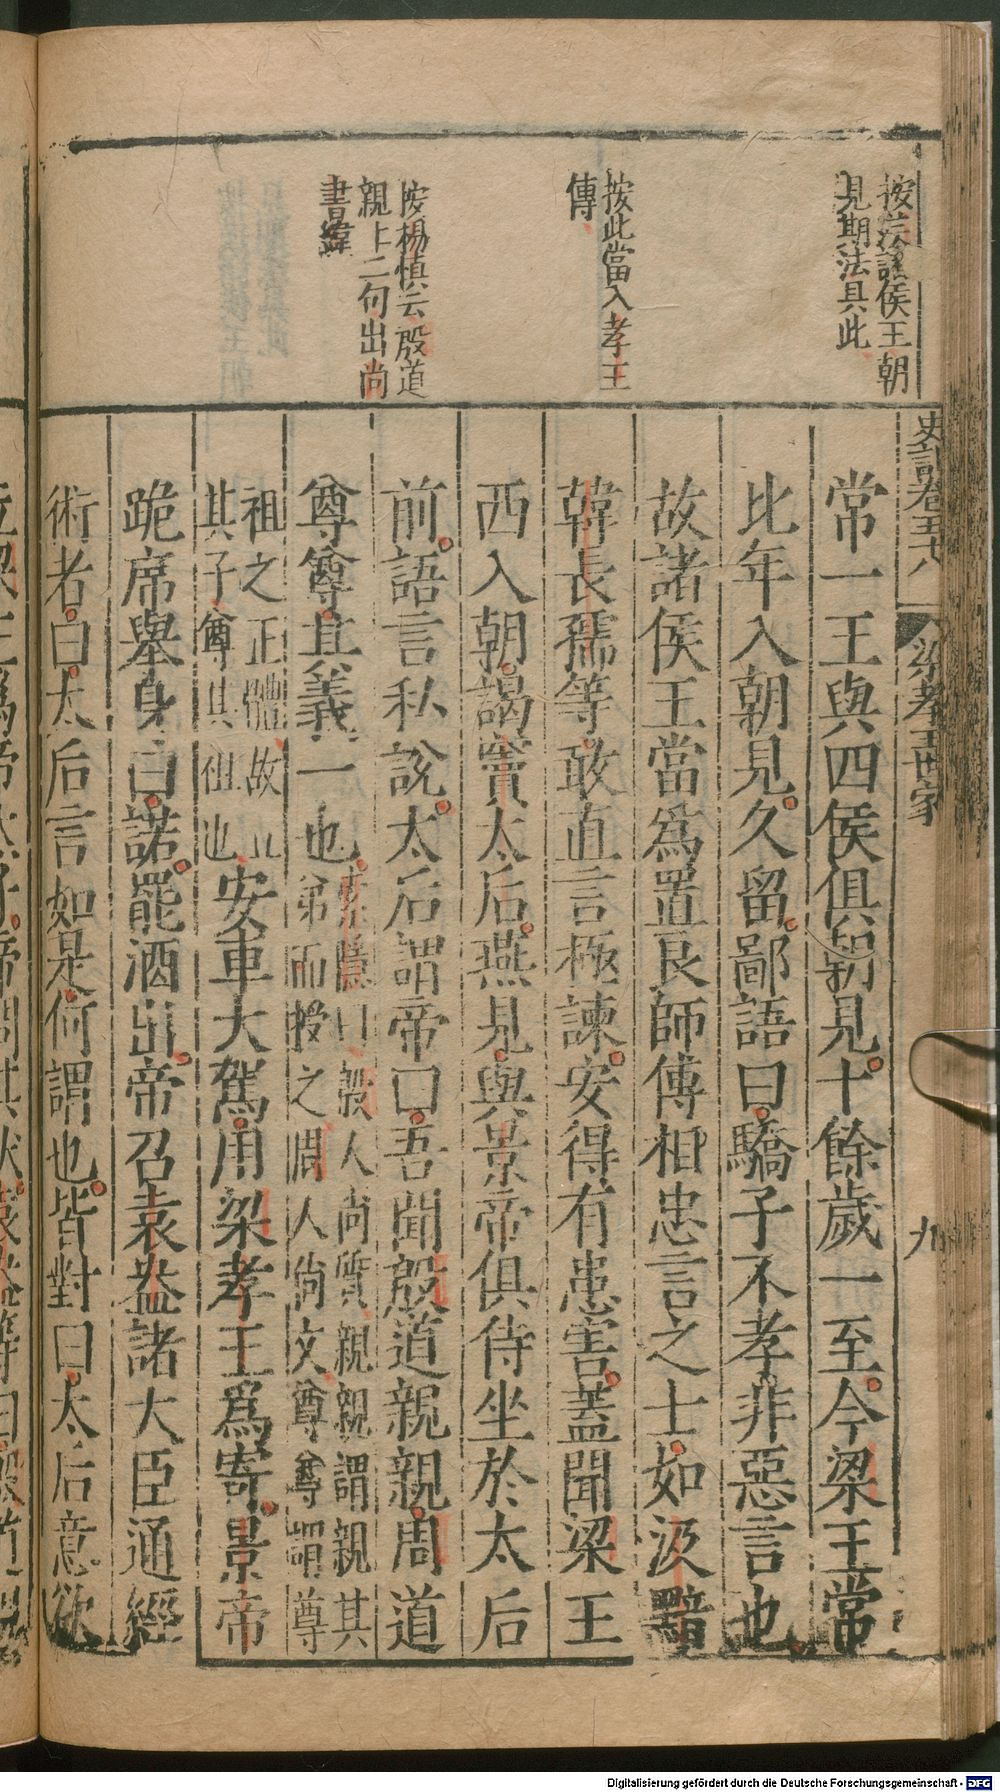 按漢諸侯王朝
見期法具此
按此當入孝王
傳
按楊慎云殷道
親上二句出尚
書緯
史記卷五十八
梁孝王世家
九
常一王與四侯俱朝見十餘歲一至今梁王常
比年入朝見久留鄙語曰驕子不孝非惡言也
故諸侯王當爲置良師傅相忠言之士如汲黯
韓長孺等敢直言極諫安得有患害蓋聞梁王
西入朝謁竇太后燕見與景帝俱侍坐於太后
前語言私說太后謂帝曰吾聞殷道親親周道
尊尊其義一也
索隱曰殷人尚質親親謂親其
弟而授之周人尚文尊尊謂尊
祖之正體故立
其子尊其祖也
安車大駕用梁孝王爲寄景帝
跪席舉身曰諾罷酒出帝召袁盎諸大臣通經
術者曰太后言如是何謂也皆對曰太后意欲
立梁王爲帝太子帝問其狀袁盎等曰殷道親
Digitalisierung gefördert durch die Deutsche Forschungsgemeinschaft - DFG